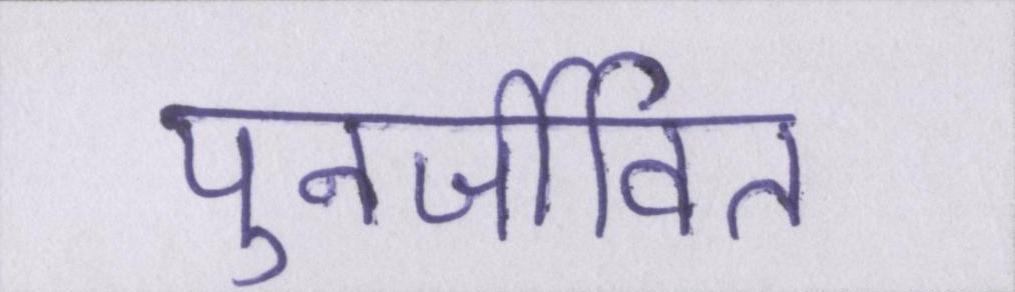 पुनर्जीवित